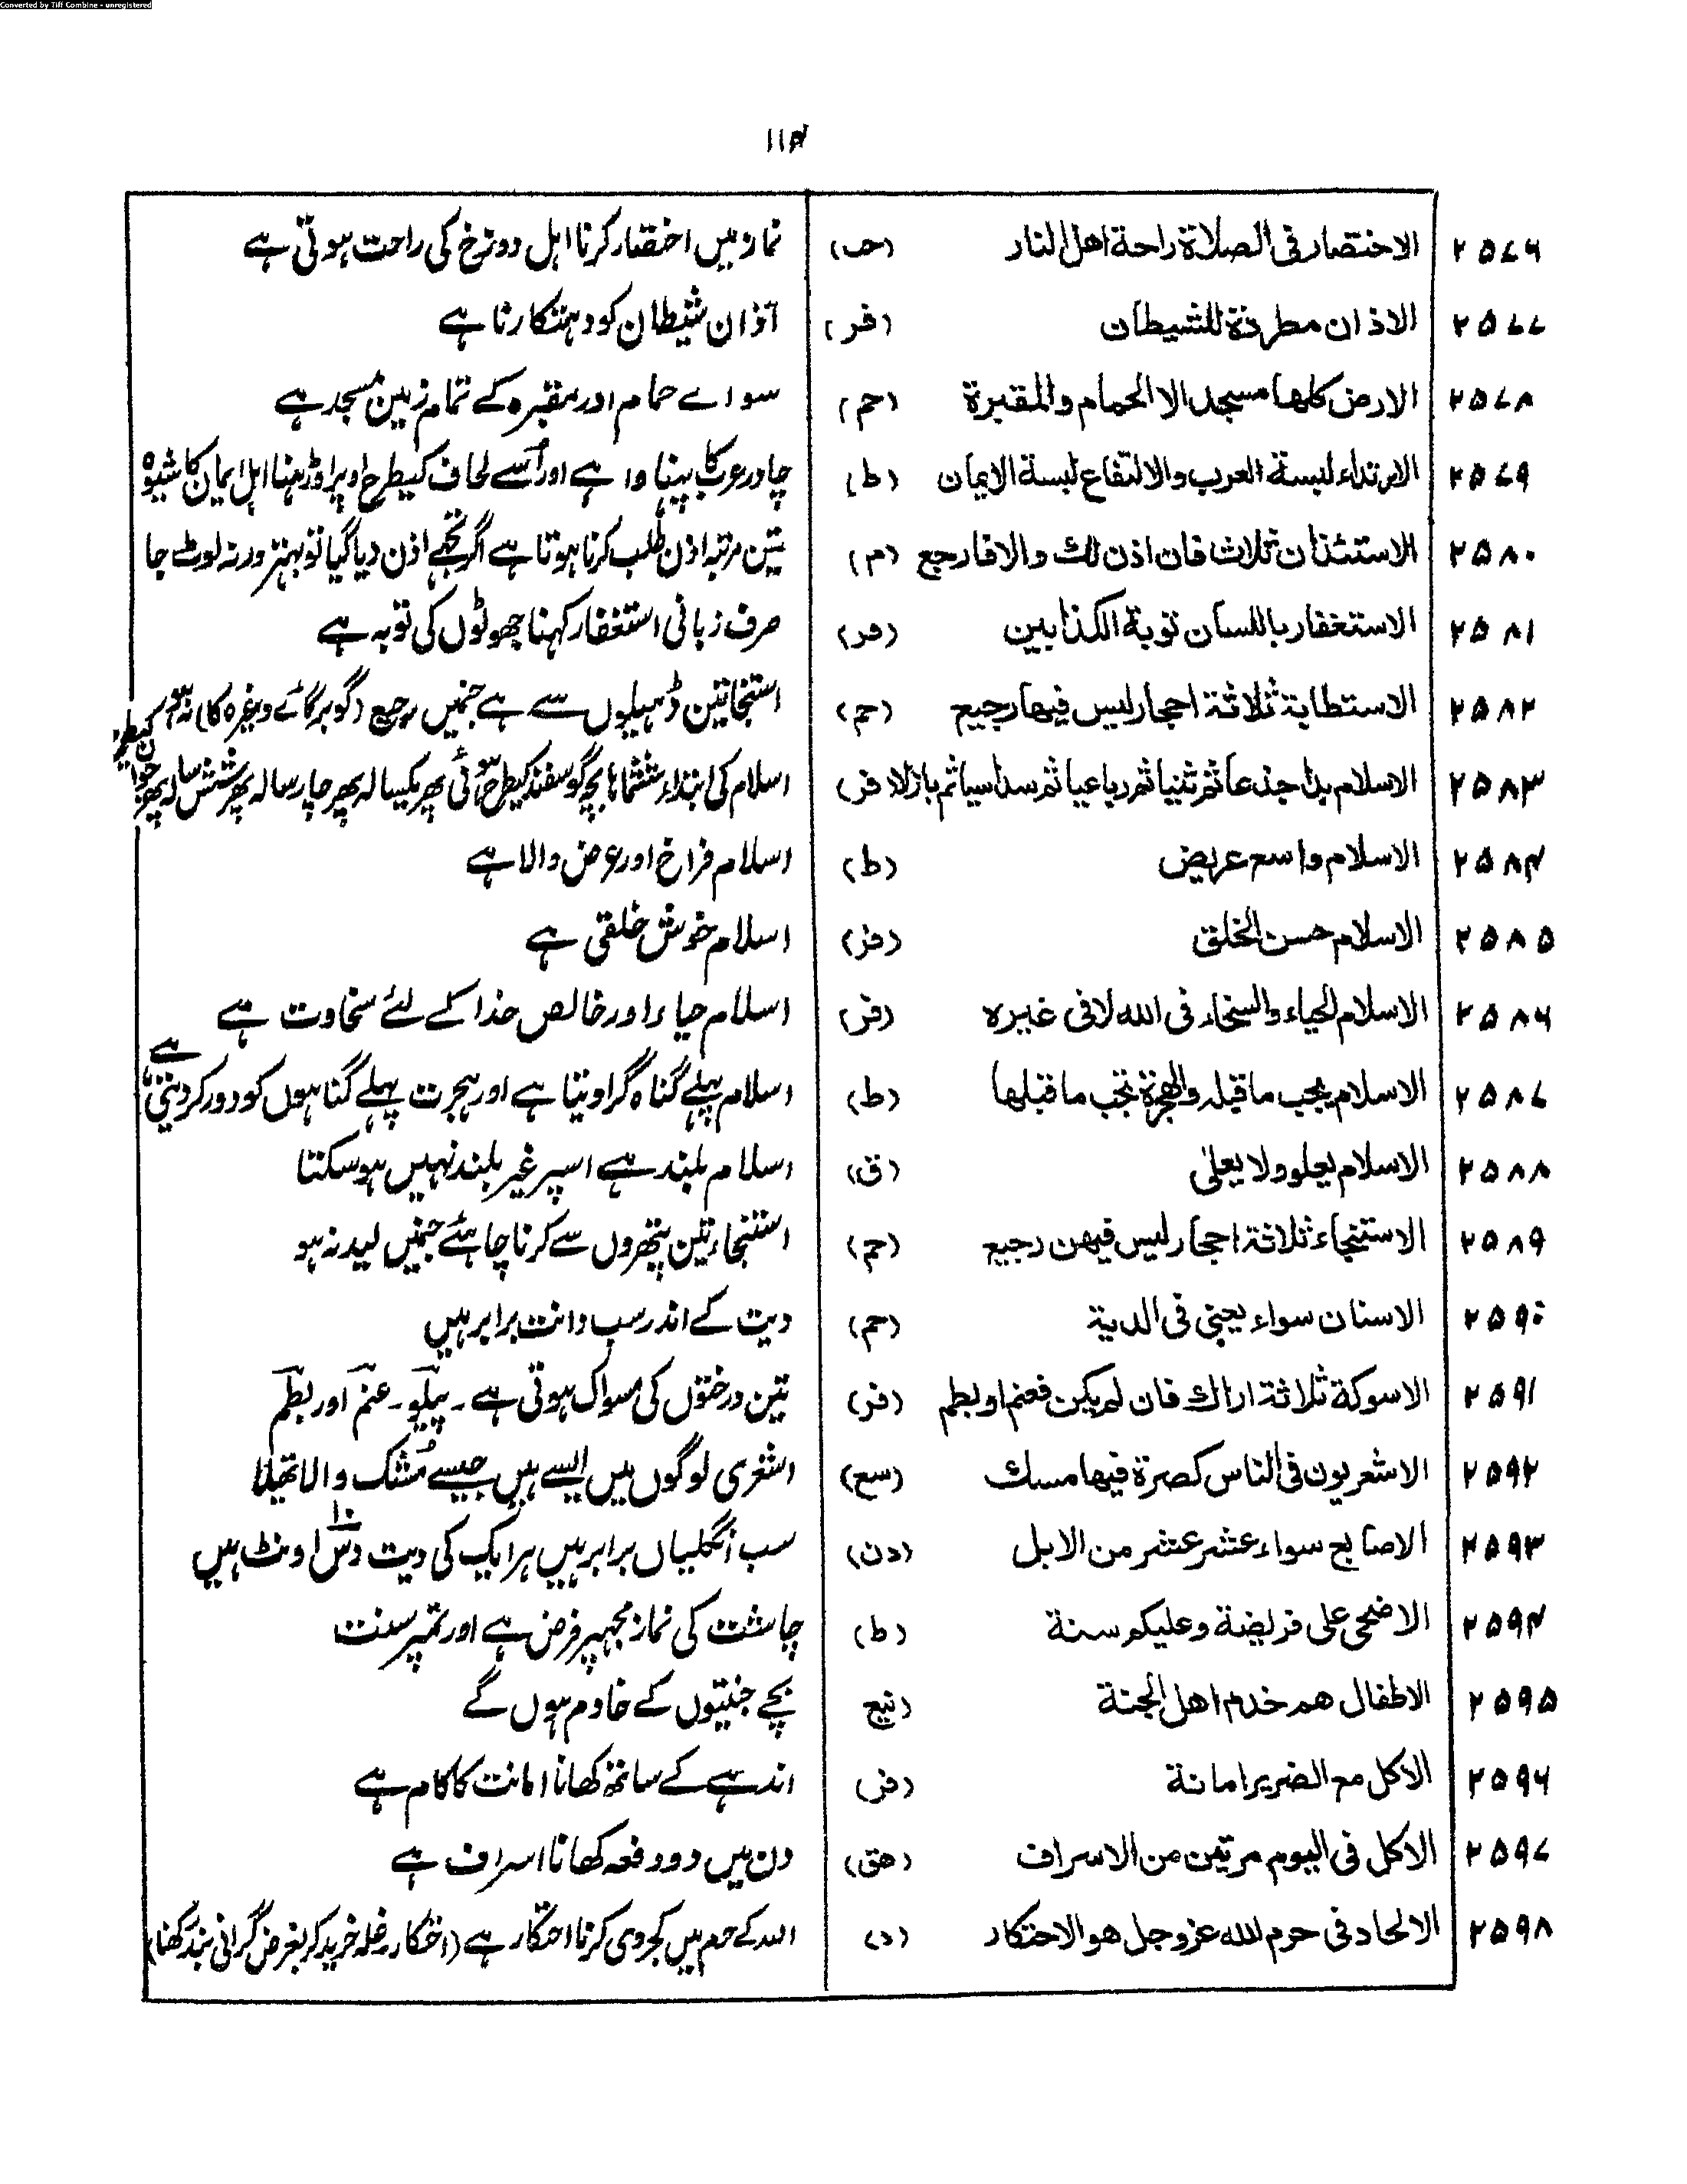 Converted by Tiff Combine - unregistered
۱۱۴
۲۵۷۶ الاختصار فی الصلاة راحة اهل النار (حب) نماز میں اختصار کرنا اہل دوزخ کی راحت ہوتی ہے
۲۵۷۷ الاذان مطردة للشیطان (فر) آذان شیطان کو دہتکارتا ہے
۲۵۷۸ الارض کلها مسجد الا الحمام والمقبرة (حم) سواے حمام اور مقبرہ کے تمام زمین مسجد ہے
۲۵۷۹ الارتداء لبسة العرب والالتفاع لبسة الایمان (ط) چادر عرب کا پہناوا ہے اور اُسے لحاف کیطرح اوپر اوڑہنا اہل ایمان کا شیوہ
۲۵۸۰ الاستئذان ثلاث فان اذن لك والا فارجع (م) تین مرتبہ اذن طلب کرنا ہوتا ہے اگر تجھے اذن دیا گیا تو بہتر ورنہ لوٹ جا
۲۵۸۱ الاستغفار باللسان توبة الکذابین (فر) صرف زبانی استغفار کہنا جھوٹوں کی توبہ ہے
۲۵۸۲ الاستطابة ثلاثة احجار لیس فیها رجیع (حم) استنجا تین ڈہیلوں سے ہے جنمیں رجیع (گوبر گائے وغیرہ کا) نہ ہو
۲۵۸۳ الاسلام بدا جذعا ثم ثنیا ثم رباعیا ثم سداسیا ثم بازلا (فر) اسلام کی ابتداء ششماہا بچہ گوسفند کیطرح ہوئی پھر یکسالہ پھر چار سالہ پھر شش سالہ پھر جوان کیطرح
۲۵۸۴ الاسلام واسع عریض (ط) اسلام فراخ اور عرض والا ہے
۲۵۸۵ الاسلام حسن الخلق (فر) اسلام خوش خلقی ہے
۲۵۸۶ الاسلام الحیاء والسخاء فی الله لا فی غیره (فر) اسلام حیاء اور خالص خدا کے لئے سخاوت ہے
۲۵۸۷ الاسلام یجب ما قبله والهجرة تجب ما قبلها (ط) اسلام پہلے گناہ گرا دیتا ہے اور ہجرت پہلے گناہوں کو دور کر دیتی ہے
۲۵۸۸ الاسلام یعلو ولا یعلیٰ (ق) اسلام بلند ہے اسپر غیر بلند نہیں ہو سکتا
۲۵۸۹ الاستنجاء ثلاثة احجار لیس فیهن رجیع (حم) استنجاء تین پتھروں سے کرنا چاہئے جنمیں لید نہ ہو
۲۵۹۰ الاسنان سواء یعنی فی الدیة (حم) دیت کے اندر سب دانت برابر ہیں
۲۵۹۱ الاسوکة ثلاثة اراك فان لم یکن فعنم او بطم (فر) تین درختوں کی مسواک ہوتی ہے ۔ پیلو ۔ عنم اور بطم
۲۵۹۲ الاشعریون فی الناس کصرة فیها مسك (سع) اشعری لوگوں میں ایسے ہیں جیسے مُشک والا تھیلا
۲۵۹۳ الاصابع سواء عشر عشر من الابل (دن) سب انگلیاں برابر ہیں ہر ایک کی دیت دس ۱۰ اونٹ ہیں
۲۵۹۴ الاضحی علی فریضة وعلیکم سنة (ط) چاشت کی نماز مجہپر فرض ہے اور تمپر سنت
۲۵۹۵ الاطفال هم خدم اهل الجنة بچے جنتیوں کے خادم ہوں گے
۲۵۹۶ الاکل مع الضریر امانة (فر) اندہے کے ساتھ کھانا امانت کا کام ہے
۲۵۹۷ الاکل فی الیوم مرتین من الاسراف (هق) دن میں دو دفعہ کھانا اسراف ہے
۲۵۹۸ الالحاد فی حرم الله عز وجل هو الاحتکار (د) اللہ کے حرم میں کجروی کرنا احتکار ہے (احتکار ۔ غلہ خرید کر بغرض گرانی بند رکھنا)